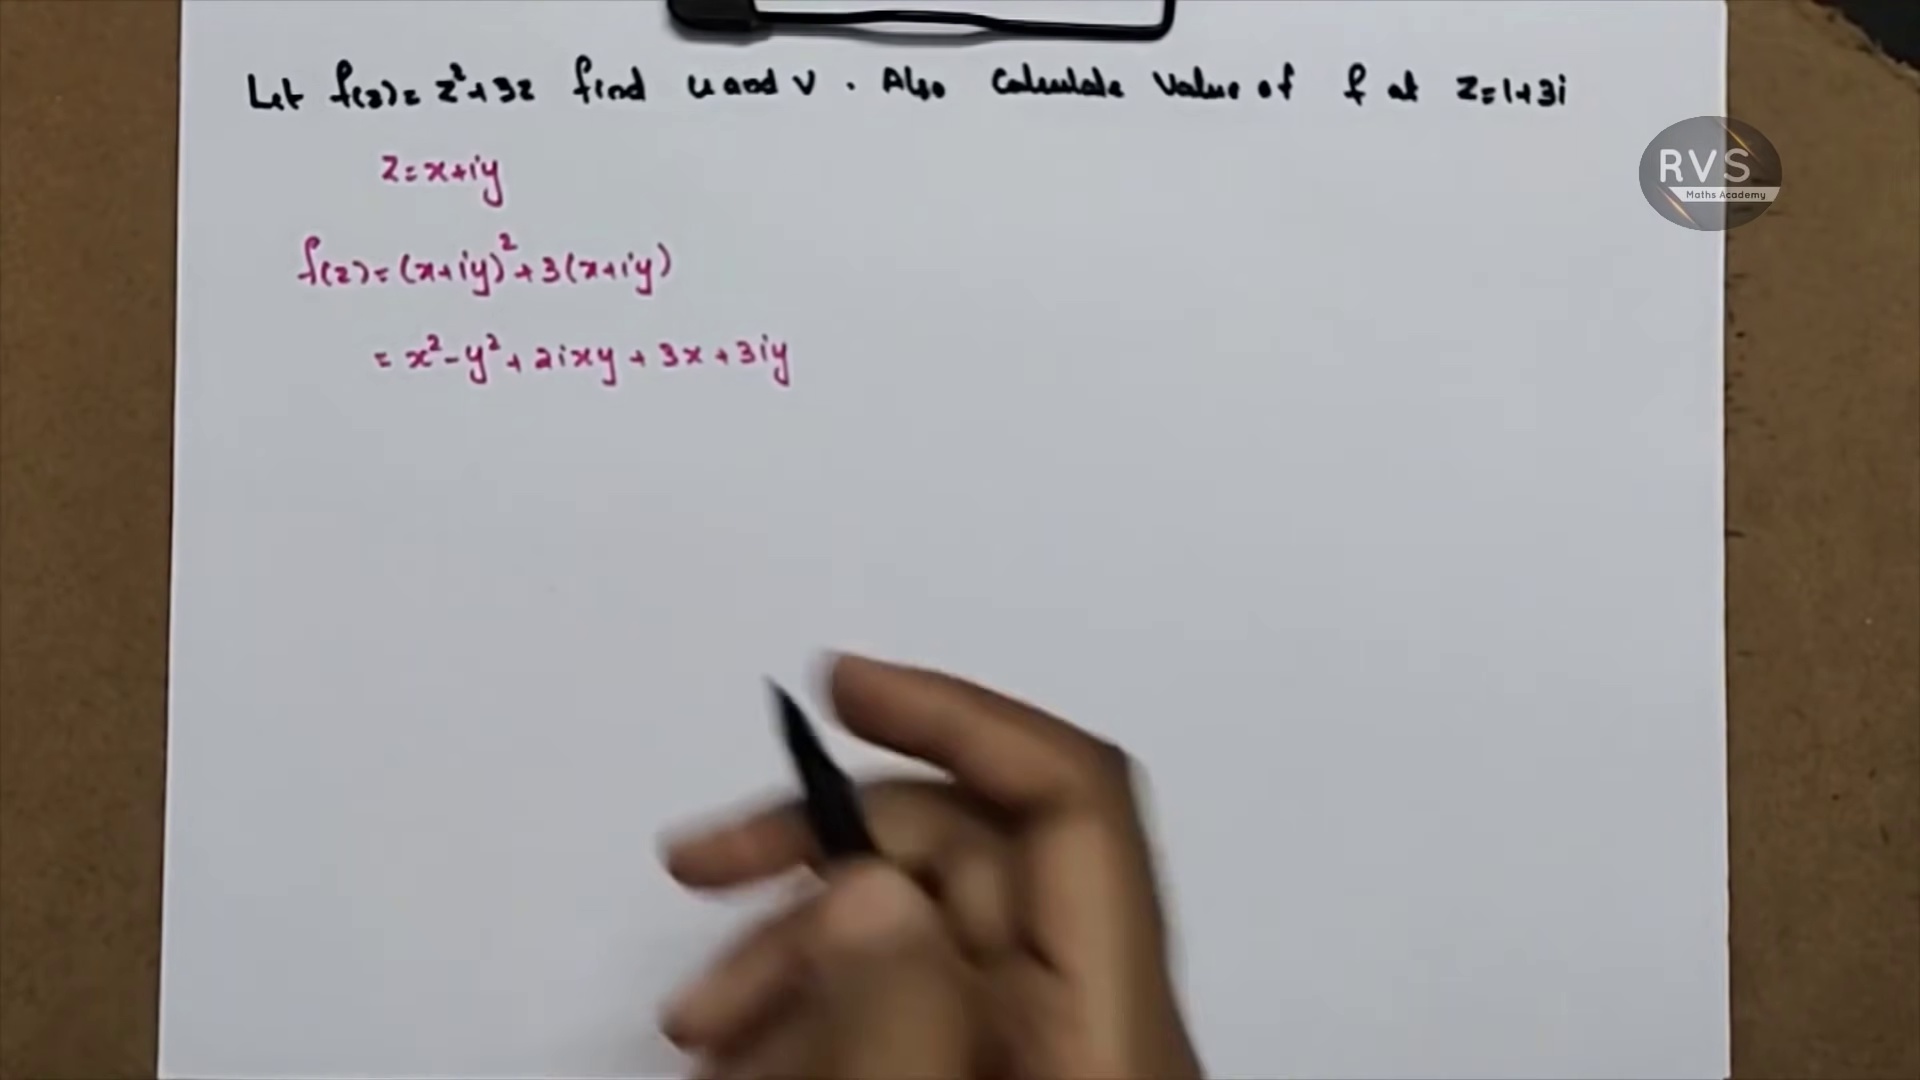 Let f(z) = z²+3z find u and v . Also Calculate Value of f at z=1+3i
RVS
Maths Academy
z = x+iy
f(z) = (x+iy)² + 3(x+iy)
= x² - y² + 2ixy + 3x + 3iy